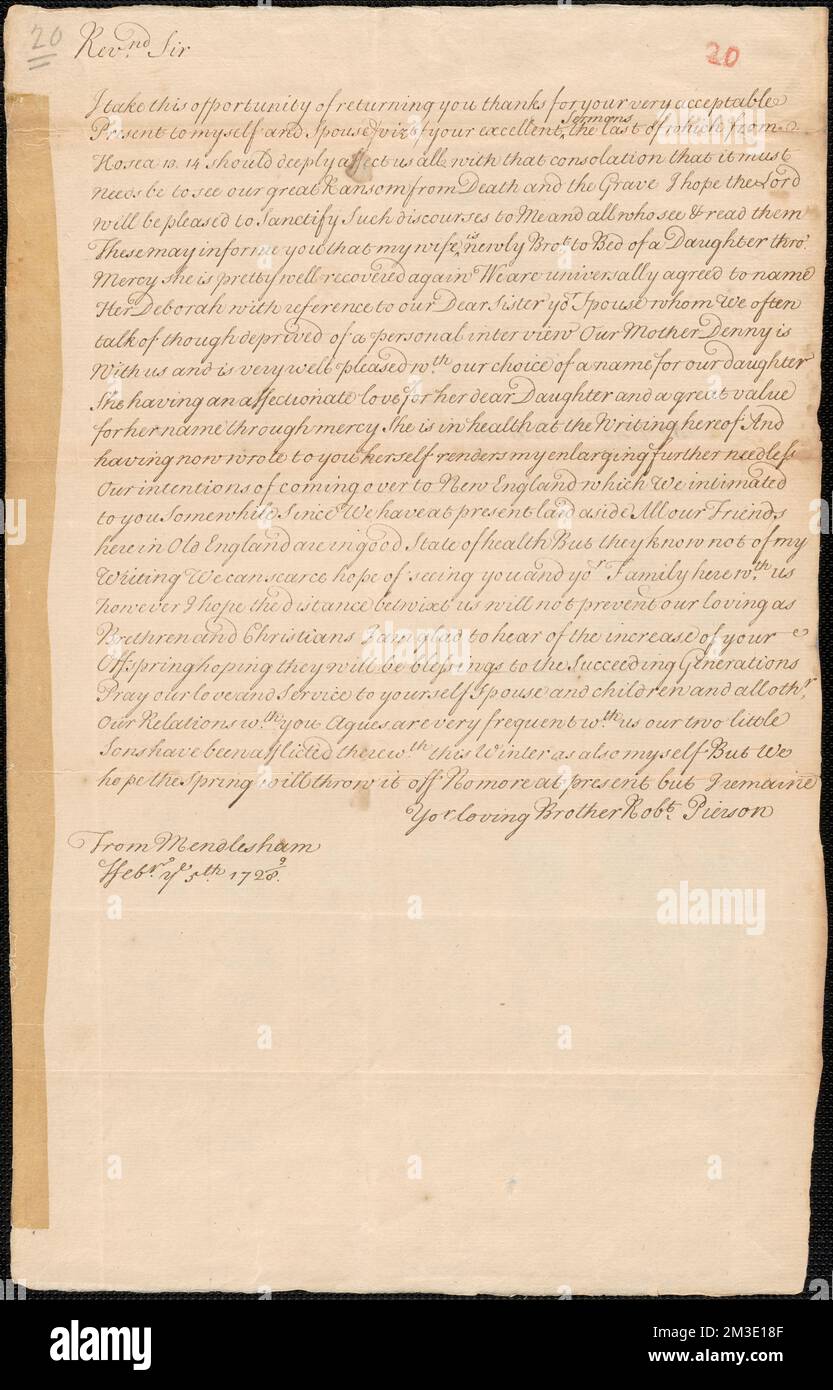 20
Rev.nd Sir
20
I take this opportunity of returning you thanks for your very acceptable
Sermons
Present to myself and Spouse vizt your excellent ^ the last of which from
Hosea 13. 14 should deeply affect us all with that consolation that it must
needs be to see our great Ransom from Death and the Grave I hope the Lord
will be pleased to Sanctify Such discourses to Me and all who see & read them
These may informe you that my wife is newly Brot to Bed of a Daughter thro'
Mercy She is pretty well recovered again We are universally agreed to name
Her Deborah with reference to our Dear Sister yor Spouse whom We often
talk of though deprived of a personal interview Our Mother Denny is
With us and is very well pleased wth our choice of a name for our daughter
She having an affectionate love for her dear Daughter and a great value
for her name through mercy She is in health at the Writing hereof And
having now wrote to you herself renders my enlarging further needless
Our intentions of coming over to New England which We intimated
to you Somewhile Since We have at present laid aside All our Friends
here in Old England are in good State of health But they know not of my
Writing We can scarce hope of seeing you and yor Family here wth us
however I hope the distance betwixt us will not prevent our loving as
Brethren and Christians I am glad to hear of the increase of your
Offspring hoping they will be blessings to the Succeeding Generations
Pray our love and Service to yourself Spouse and children and all othr
Our Relations wth you Agues are very frequent wth us our two little
Sons have been afflicted therewth this Winter as also myself But We
hope the Spring will throw it off No more at present but I remaine
Yor loving Brother Robt Pierson
From Mendlesham
Ffebr ye 5th 1728/9
alamy
Image ID: 2M3E18F
www.alamy.com